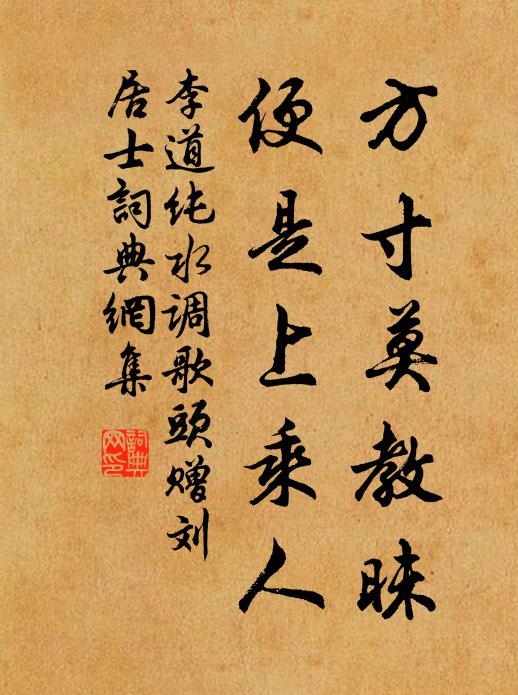 方寸莫教昧
便是上乘人
李道纯水调歌頭赠刘
居士詞典網集
詞典網印